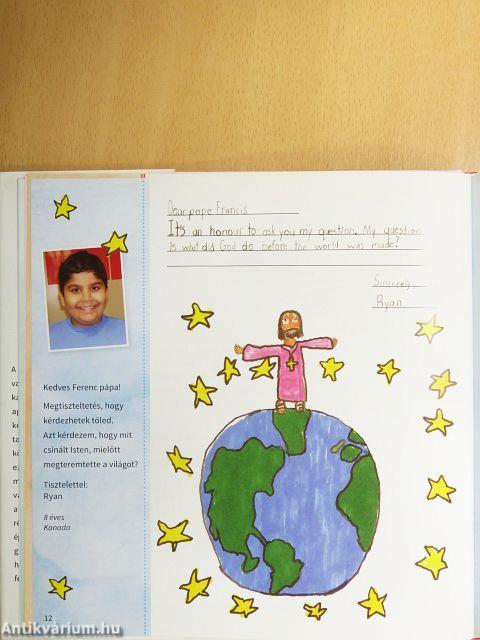 Dear pope Francis
It's an honour to ask you my question. My question
is what did God do before the world was made?
Sincerely,
Ryan
Kedves Ferenc pápa!
Megtiszteltetés, hogy
kérdezhetek tőled.
Azt kérdezem, hogy mit
csinált Isten, mielőtt
megteremtette a világot?
Tisztelettel:
Ryan
8 éves
Kanada
12
Antikvárium.hu